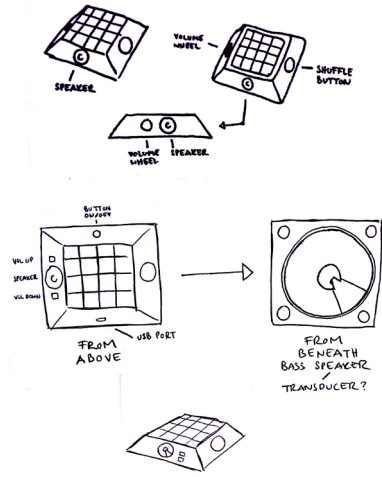 VOLUME
WHEEL
SPEAKER
SHUFFLE
BUTTON
VOLUME
WHEEL
SPEAKER
BUTTON
ON/OFF
VOL UP
SPEAKER
VOL DOWN
USB PORT
FROM
ABOVE
FROM
BENEATH
BASS SPEAKER
/
TRANSDUCER?